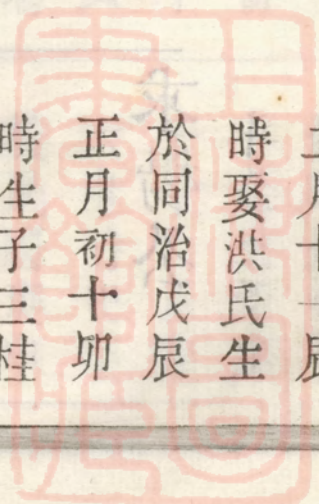 月十一辰
時娶洪氏生
於同治戊辰
正月初十卯
時生子三桂